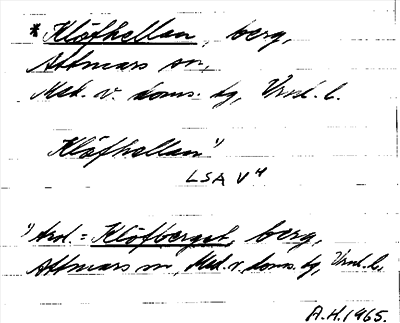 * Klöfhellan, berg,
Attmars sn,
Med. v. doms. tg, Vrnl. l.
Klöfhallen"¹⁾
LSA V 4
1) And. = Klöfberget, berg,
Attmars sn, Med. v. doms. tg, Vrnl. l.
A.H. 1965.